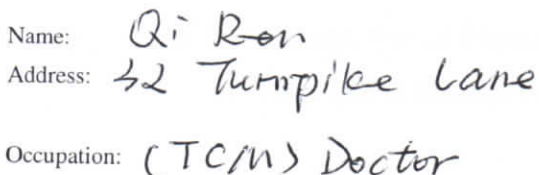 Name: Qi Ren
Address: 32 Turnpike Lane
Occupation: (TCM) Doctor